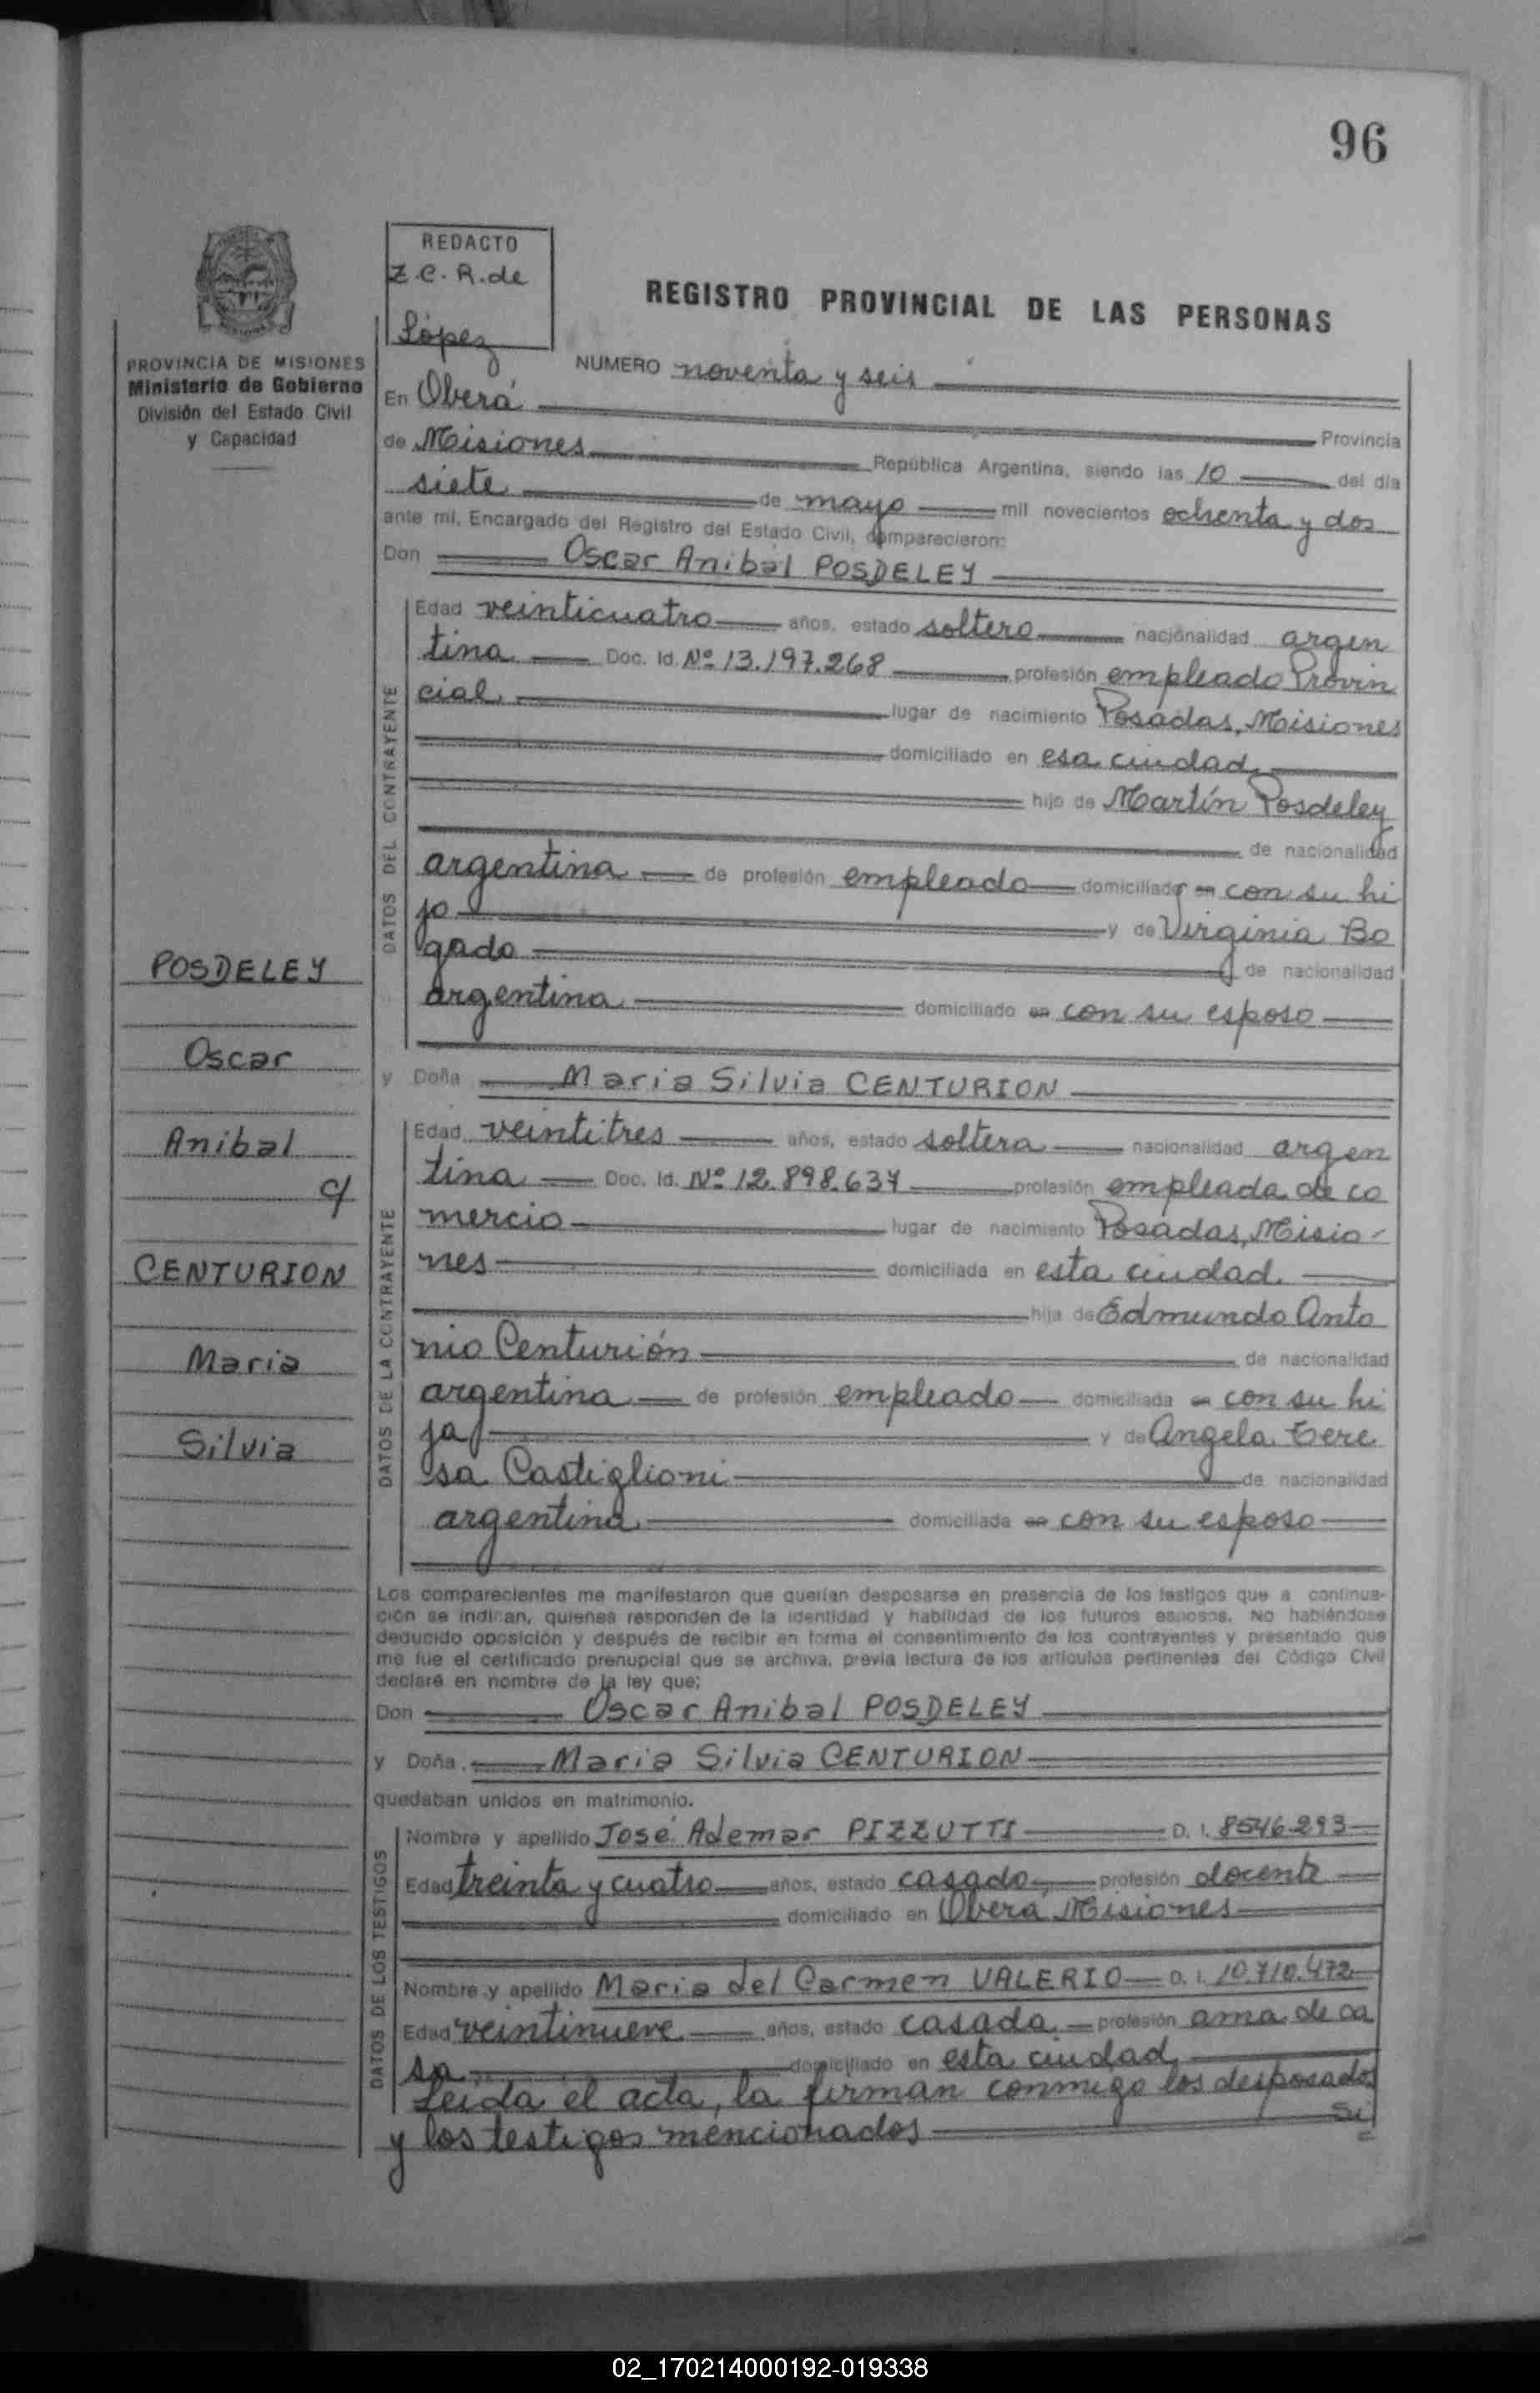 96
REDACTO
Z. C. R. de
López
REGISTRO PROVINCIAL DE LAS PERSONAS
PROVINCIA DE MISIONES
Ministerio de Gobierno
División del Estado Civil
y Capacidad
NUMERO noventa y seis
En Oberá
Provincia
de Misiones República Argentina, siendo las 10 del día
siete de mayo mil novecientos ochenta y dos
ante mí, Encargado del Registro del Estado Civil, comparecieron:
Don Oscar Anibal POSDELEY
DATOS DEL CONTRAYENTE
Edad veinticuatro años, estado soltero nacionalidad argen
tina Doc. Id. Nº 13.197.268 profesión empleado Provin
cial lugar de nacimiento Posadas, Misiones
domiciliado en esa ciudad
hijo de Martín Posdeley
de nacionalidad
argentina de profesión empleado domiciliado en con su hi
jo y de Virginia Bo
gado de nacionalidad
argentina domiciliado en con su esposo
y Doña Maria Silvia CENTURION
DATOS DE LA CONTRAYENTE
Edad veintitres años, estado soltera nacionalidad argen
tina Doc. Id. Nº 12.898.637 profesión empleada de co
mercio lugar de nacimiento Posadas, Misio-
nes domiciliada en esta ciudad.
hija de Edmundo Anto
nio Centurión de nacionalidad
argentina de profesión empleado domiciliada en con su hi
ja y de Angela Tere
sa Castiglioni de nacionalidad
argentina domiciliada en con su esposo
POSDELEY
Oscar
Anibal
c/
CENTURION
Maria
Silvia
Los comparecientes me manifestaron que querían desposarse en presencia de los testigos que a continua-
ción se indican, quienes responden de la identidad y habilidad de los futuros esposos. No habiéndose
deducido oposición y después de recibir en forma el consentimiento de los contrayentes y presentado que
me fue el certificado prenupcial que se archiva, previa lectura de los artículos pertinentes del Código Civil
declaré en nombre de la ley que:
Don Oscar Anibal POSDELEY
y Doña Maria Silvia CENTURION
quedaban unidos en matrimonio.
DATOS DE LOS TESTIGOS
Nombre y apellido José Ademar PIZZUTTI D. I. 8546.293
Edad treinta y cuatro años, estado casado, profesión docente
domiciliado en Oberá Misiones
Nombre y apellido Maria del Carmen VALERIO D. I. 10.710.472
Edad veintinueve años, estado casada profesión ama de ca
sa domiciliado en esta ciudad
Leída el acta, la firman conmigo los desposados
y los testigos mencionados Si
02_170214000192-019338